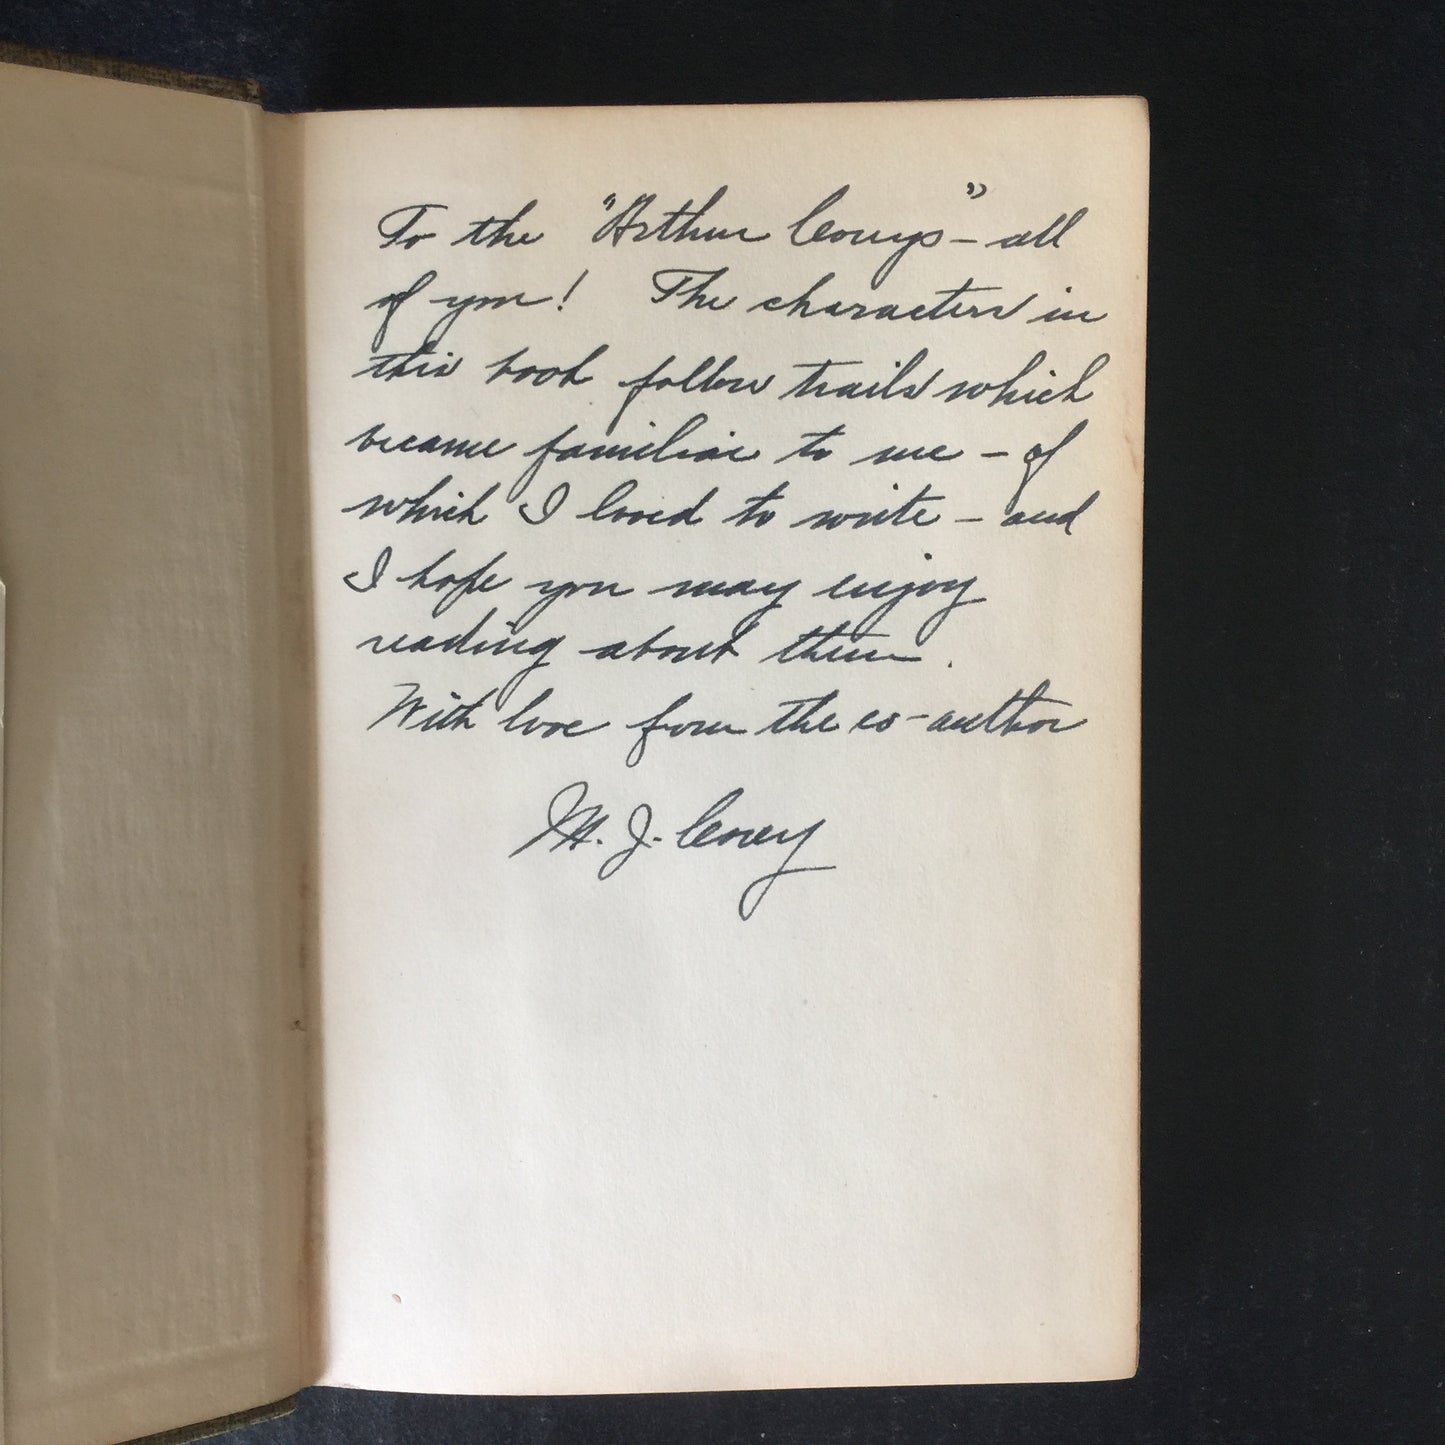 To the "Arthur Coreys" – all
of you! The characters in
this book follow trails which
became familiar to me – of
which I loved to write – and
I hope you may enjoy
reading about them.
With love from the co-author
M. J. Corey